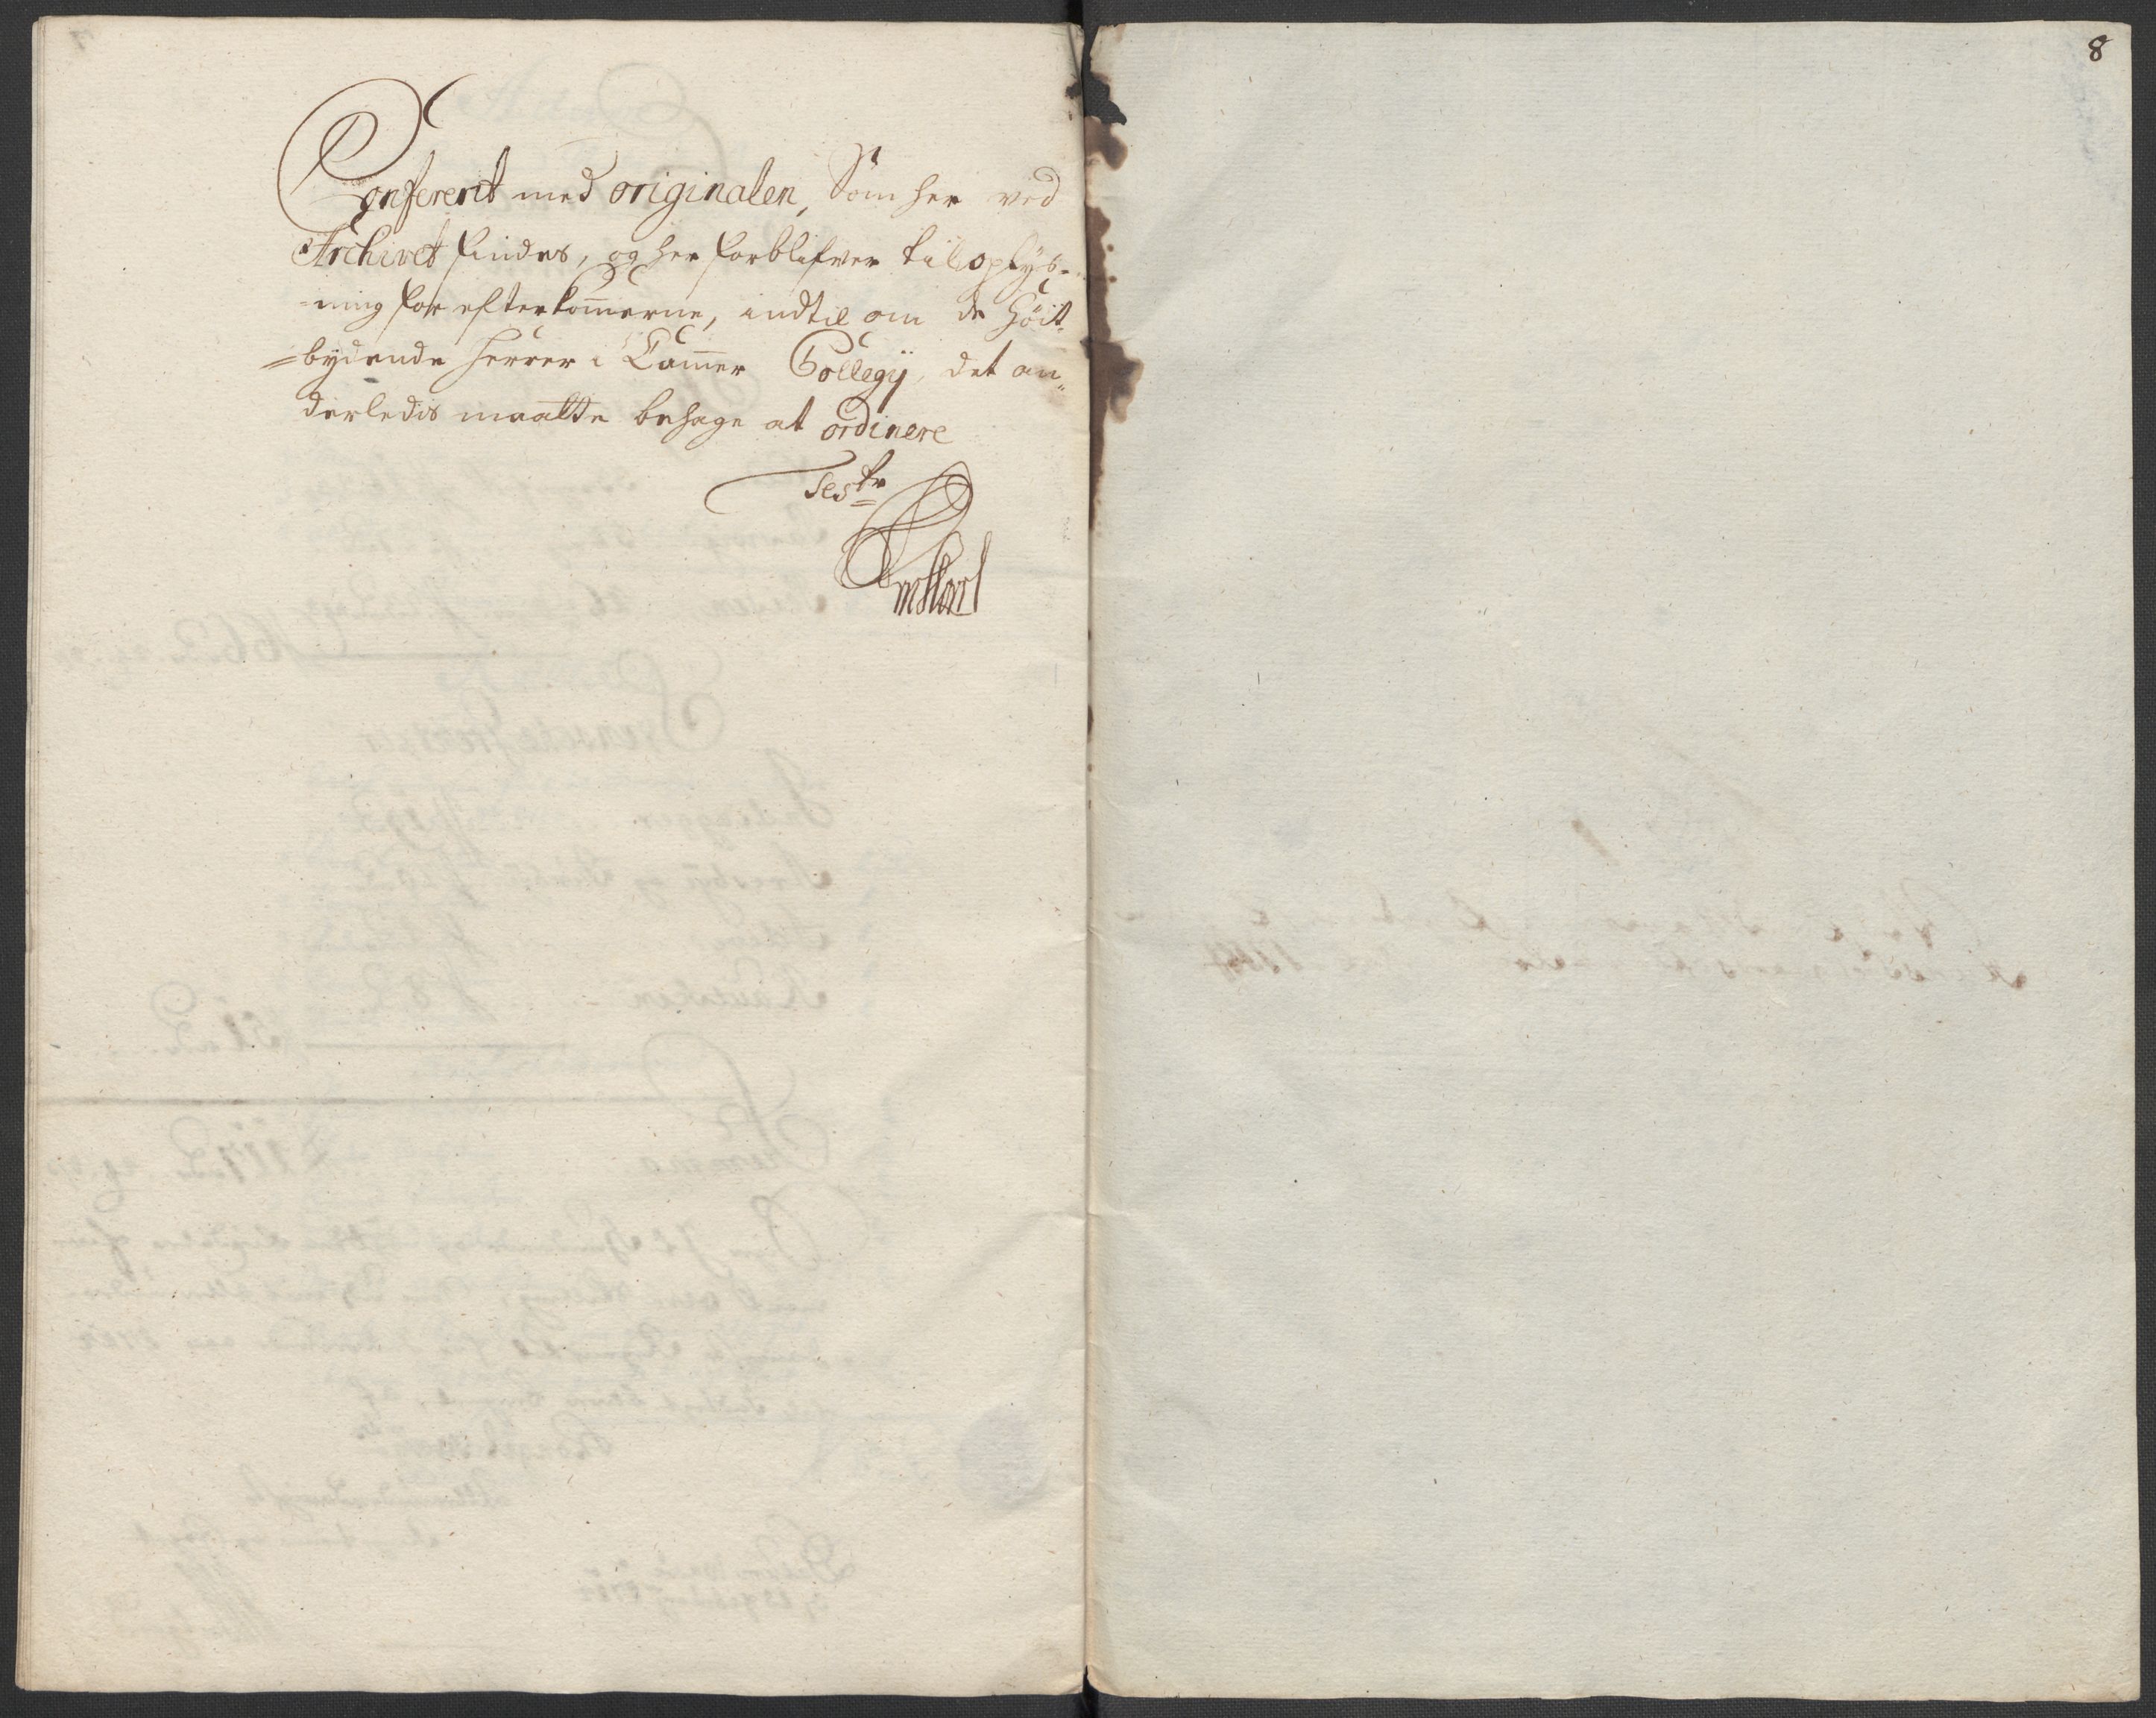 8
Confererit med originalen, Som her ved
Archivet findes, og her forblifver til oplys-
-ning for efterkom̅erne, indtil om de Höit-
=bydende Herrer i Cam̅er Collegij, det an-
derledis maatte behage at ordinere
Teste